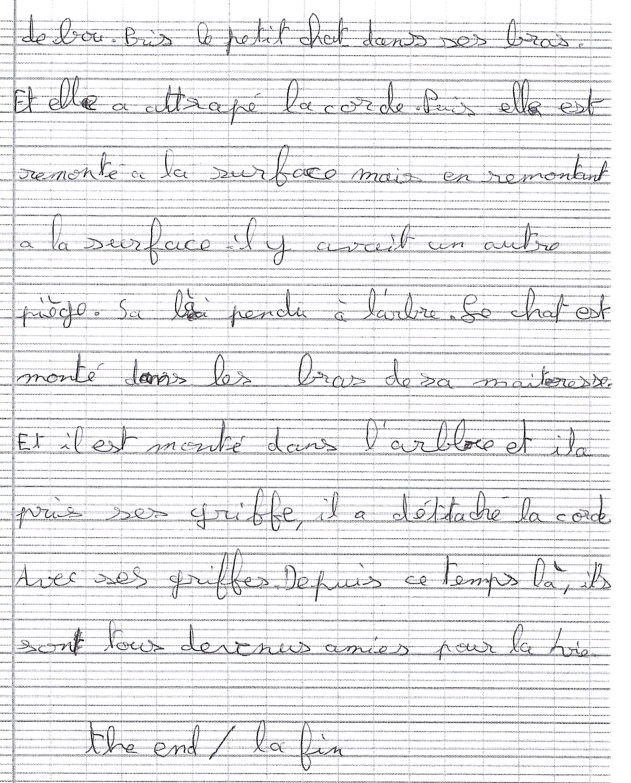 de bou. Pris le petit chat dans ses bras.
Et elle a attrapé la corde. Puis elle est
remonté a la surface mais en remontant
a la surface il y avait un autre
piège. Sa l'a pendu à l'arbre. Le chat est
monté dans les bras de sa maiteresse.
Et il est monté dans l'arbbre et il a
pris ses griffe, il a déttaché la corde
Avec ses griffes. Depuis ce temps là, ils
sont tous devenus amies pour la vie
the end / la fin